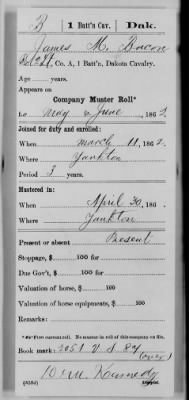 B | 1 Batt'n Cav. | Dak.
James M. Bacon
Co. A, 1 Batt'n, Dakota Cavalry.
Age years.
Appears on
Company Muster Roll*
for May & June, 1862.
Joined for duty and enrolled:
When March 11, 1862.
Where Yankton
Period 3 years.
Mustered in:
When April 30, 186
Where Yankton
Present or absent Present
Stoppage, $ 100 for
Due Gov't, $ 100 for
Valuation of horse, $ 100
Valuation of horse equipments, $ 100
Remarks:
Book mark: 2051 V. S. 84
(over)
Wm. Kennedy
Copyist.